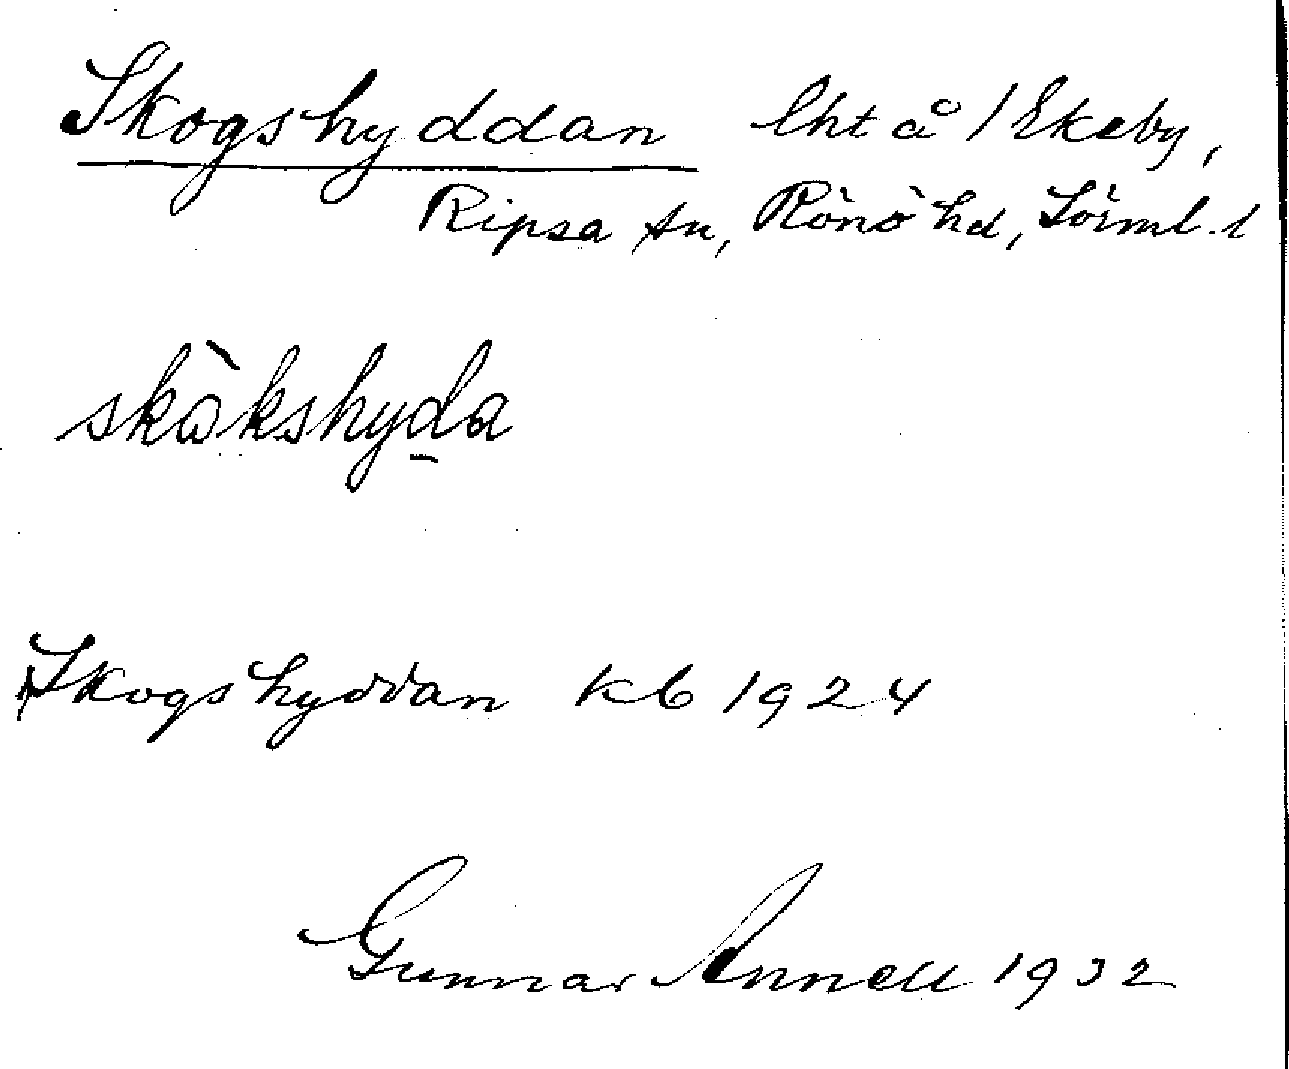 Skogshyddan lht å 1 Ekeby,
Ripsa sn, Rönö hd, Sörml. l
skàkshyd̲a
Skogshyddan kb 1924
Gunnar Annell 1932